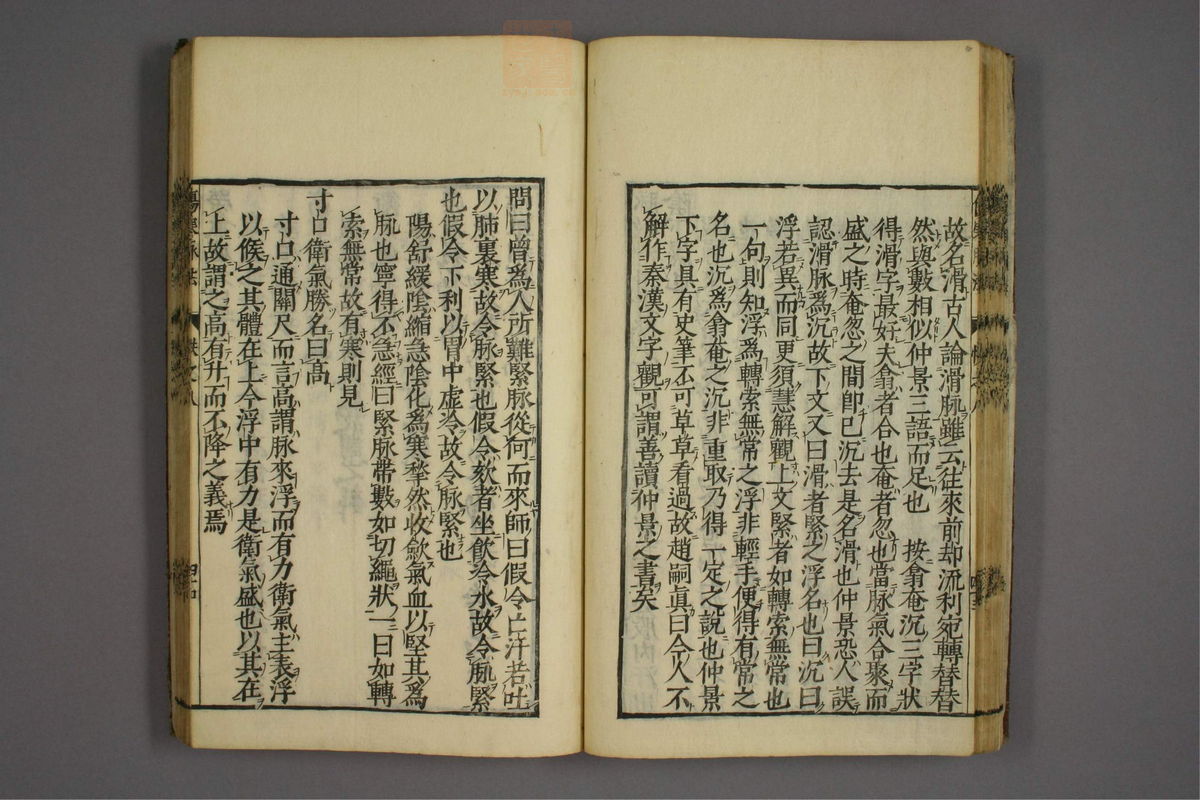 故名滑古人論滑脉雖云往來前却流利宛轉替替
然與數相似仲景三語而足也　按翕奄沉三字狀
得滑字最好夫翕者合也奄者忽也當脉氣合聚而
盛之時奄忽之間即已沉去是名滑也仲景恐人誤
認滑脉爲沉故下文又曰滑者緊之浮名也曰沉曰
浮若異而同更須慧解觀上文緊者如轉索無常也
一句則知浮爲轉索無常之浮非輕手便得有常之
名也沉爲翕奄之沉非重取乃得一定之說也仲景
下字具有史筆不可草草看過故趙嗣眞曰今人不
解作秦漢文字觀可謂善讀仲景之書矣
問曰曾爲人所難緊脉從何而來師曰假令亡汗若吐
以肺裏寒故令脉緊也假令欬者坐飲冷水故令脉緊
也假令下利以胃中虚冷故令脉緊也
陽舒緩陰縮急陰化爲寒孳然收歛氣血以堅其爲
脉也寧得不急經曰緊脉帶數如切繩狀一曰如轉
索無常故有寒則見
寸口衛氣勝名曰高
寸口通關尺而言高謂脉來浮而有力衛氣主表浮
以候之其體在上今浮中有力是衛氣盛也以其在
上故謂之高有升而不降之義焉